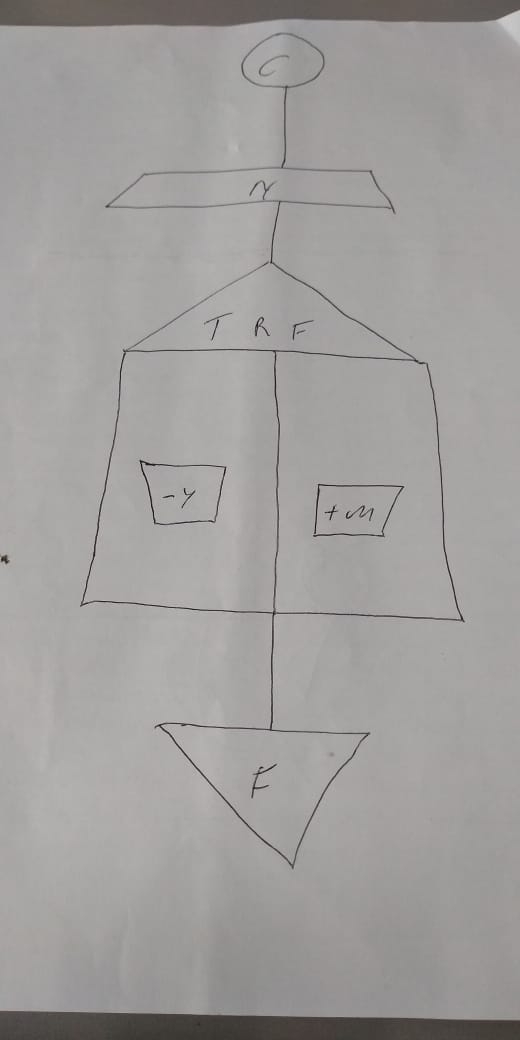 C
N
T R F
-Y
+M
F